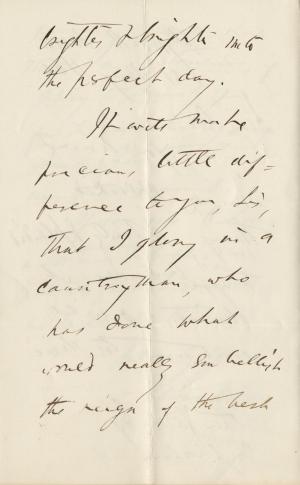 brighter & brighter into
the perfect day.
It will make
precious little dif=
ference to you, Sir,
that I glory in a
countryman, who
has done what
would really embellish
the reign of the best